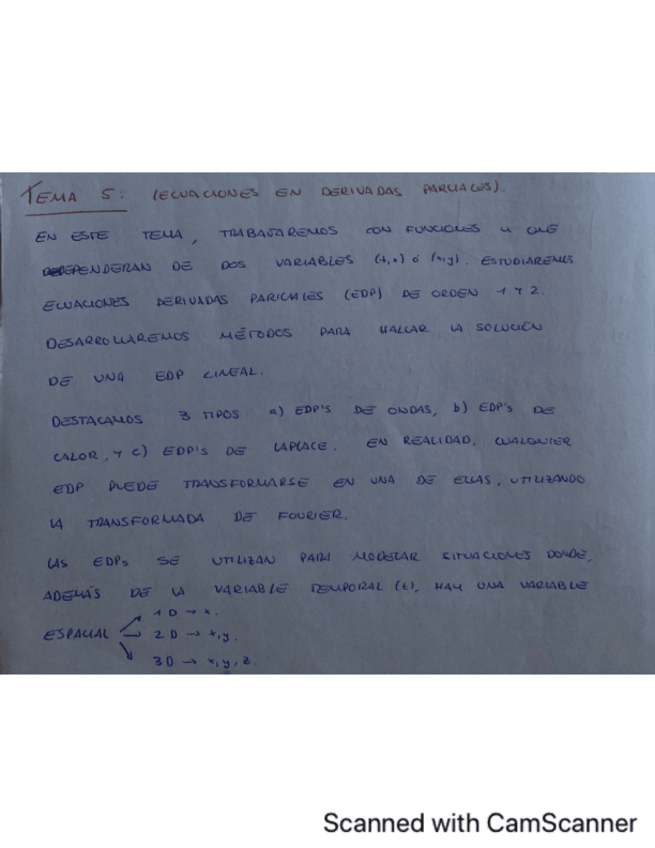 TEMA 5: (ECUACIONES EN DERIVADAS PARCIALES).
EN ESTE TEMA, TRABAJAREMOS CON FUNCIONES u QUE
DEPENDERAN DE DOS VARIABLES (t,x) ó (x,y). ESTUDIAREMOS
ECUACIONES DERIVADAS PARICIALES (EDP) DE ORDEN 1 Y 2.
DESARROLLAREMOS MÉTODOS PARA HALLAR LA SOLUCIÓN
DE UNA EDP LINEAL.
DESTACAMOS 3 TIPOS a) EDP'S DE ONDAS, b) EDP'S DE
CALOR, Y C) EDP'S DE LAPLACE. EN REALIDAD, CUALQUIER
EDP PUEDE TRANSFORMARSE EN UNA DE ELLAS, UTILIZANDO
LA TRANSFORMADA DE FOURIER.
LAS EDPs SE UTILIZAN PARA MODELAR SITUACIONES DONDE,
ADEMÁS DE LA VARIABLE TEMPORAL (t), HAY UNA VARIABLE
1D → x.
ESPACIAL → 2D → x,y.
3D → x,y,z.
Scanned with CamScanner